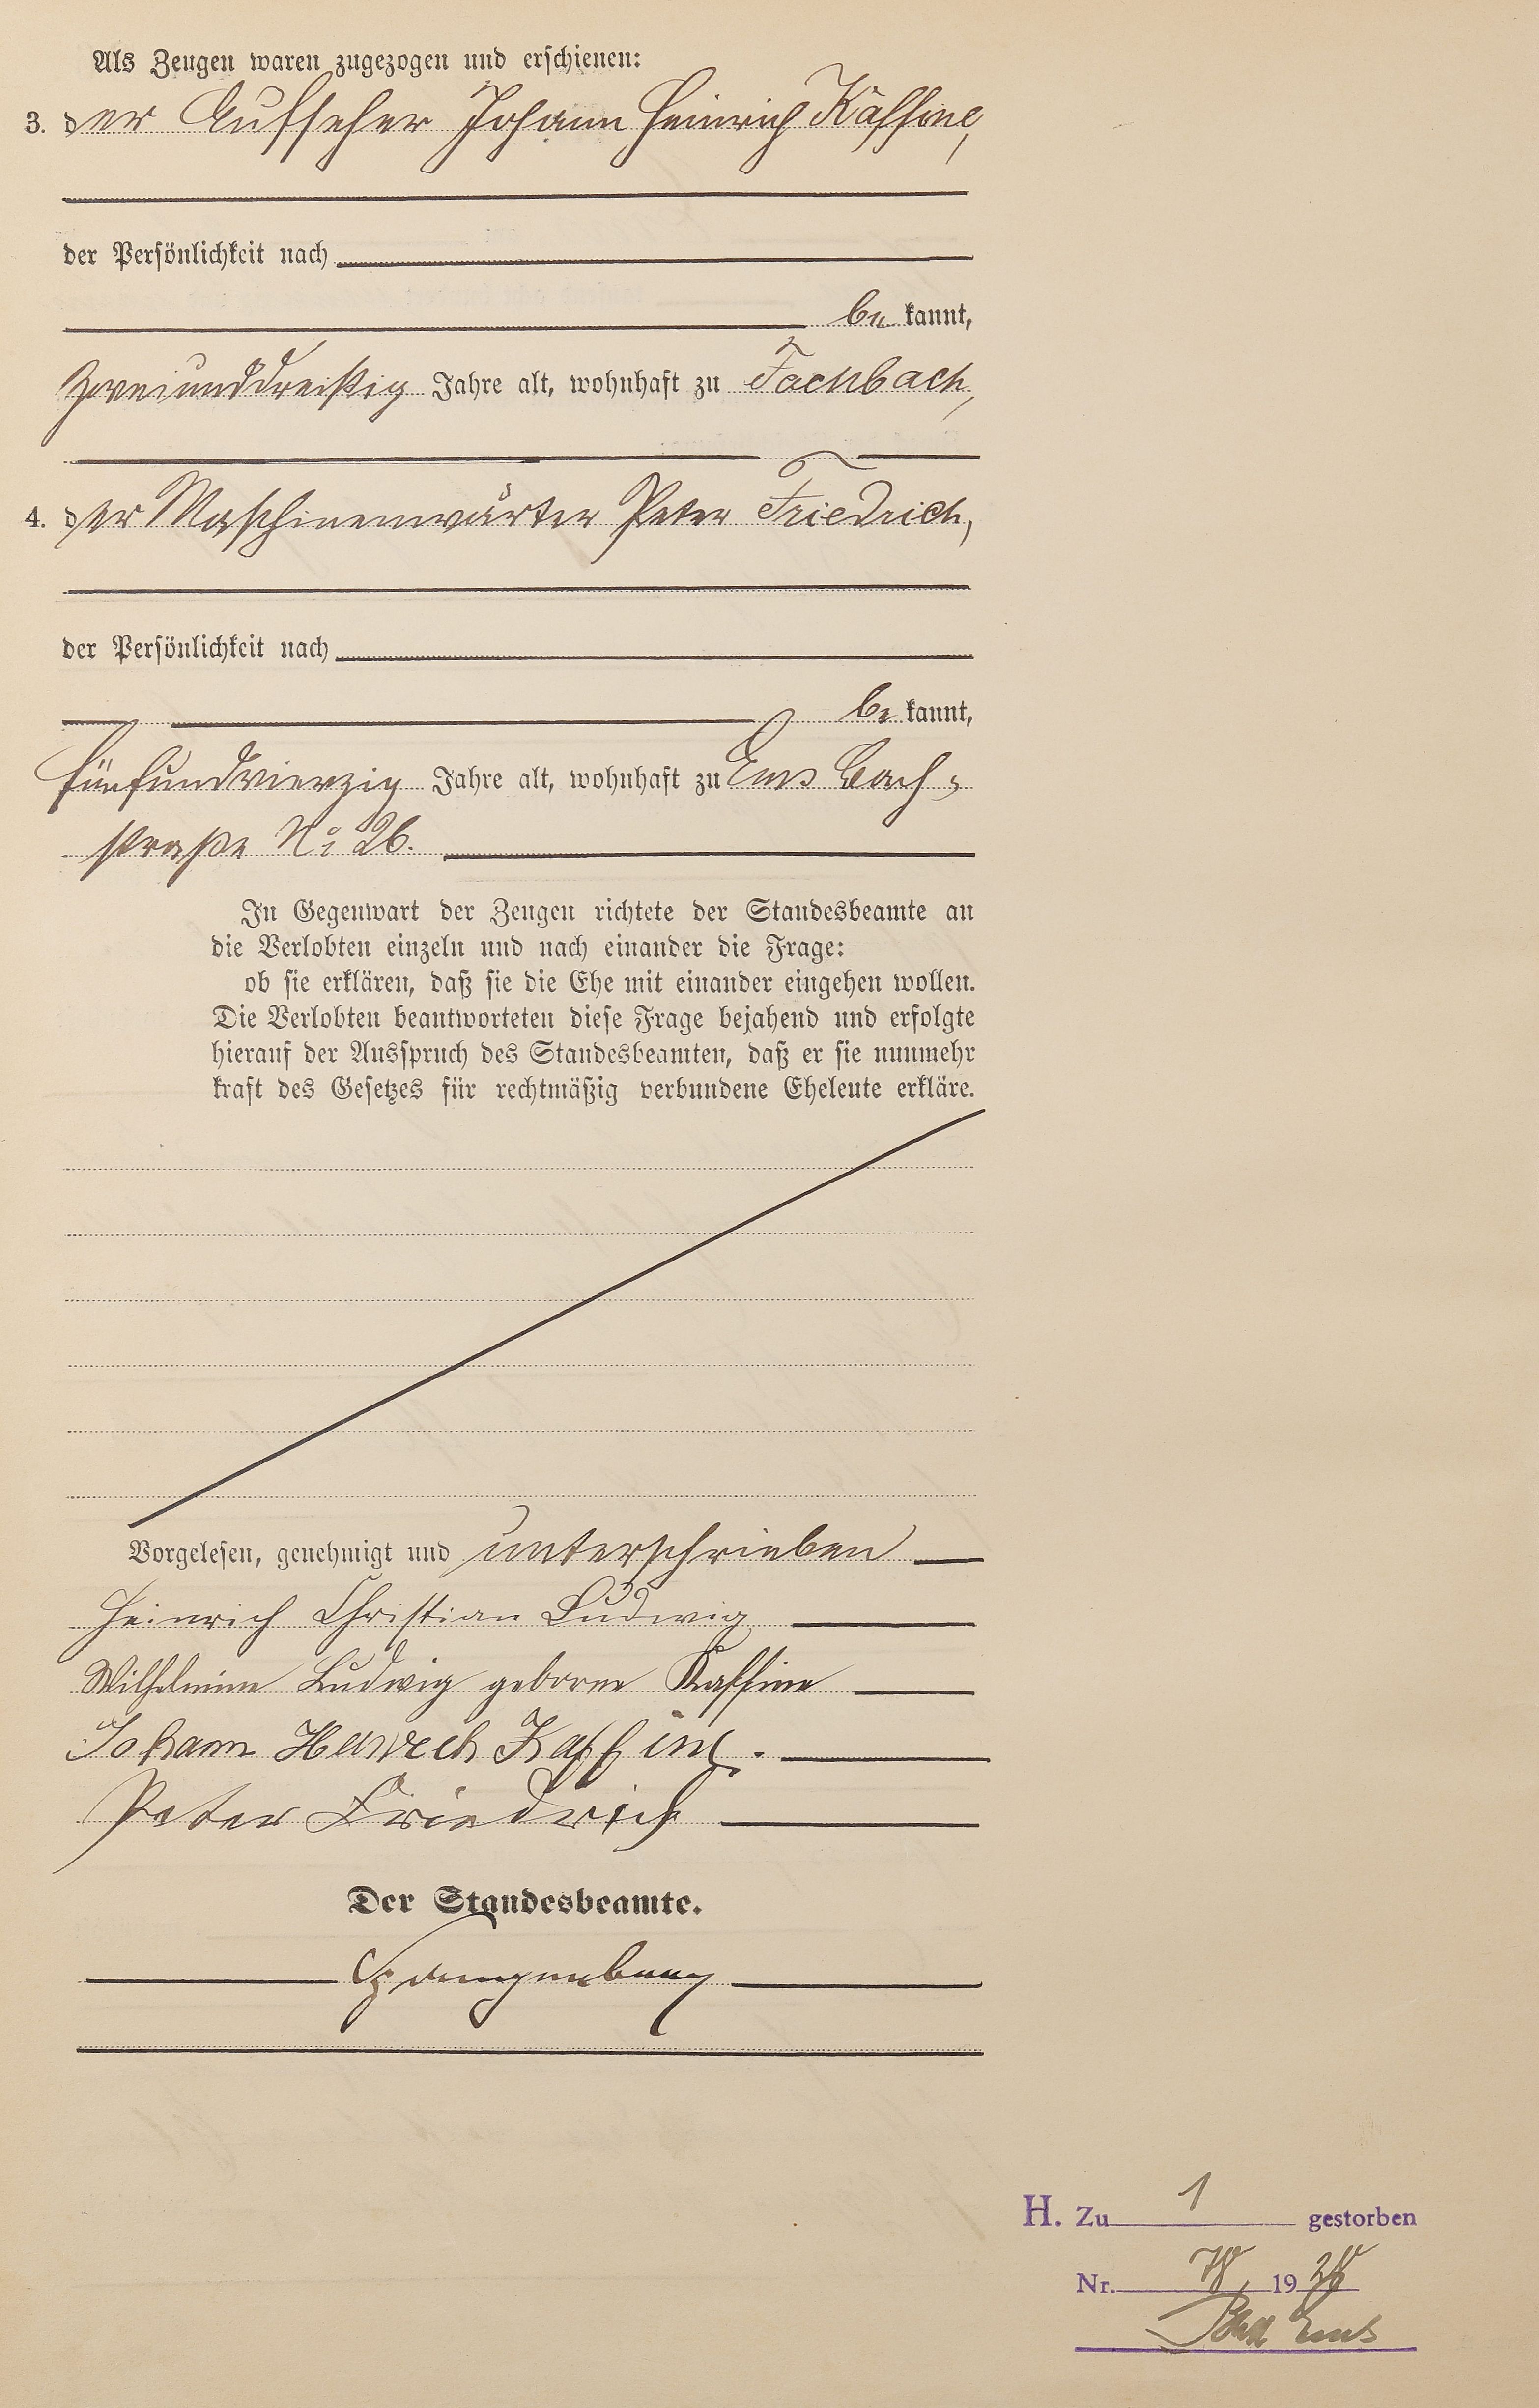 Als Zeugen waren zugezogen und erschienen:
3. der Aufseher Johann Heinrich Kaffine,
der Persönlichkeit nach
be kannt,
zweiunddreißig Jahre alt, wohnhaft zu Fachbach,
4. der Maschinenwärter Peter Friedrich,
der Persönlichkeit nach
be kannt,
fünfundvierzig Jahre alt, wohnhaft zu Ems Bach-
straße No 26.
In Gegenwart der Zeugen richtete der Standesbeamte an
die Verlobten einzeln und nach einander die Frage:
ob sie erklären, daß sie die Ehe mit einander eingehen wollen.
Die Verlobten beantworteten diese Frage bejahend und erfolgte
hierauf der Ausspruch des Standesbeamten, daß er sie nunmehr
kraft des Gesetzes für rechtmäßig verbundene Eheleute erkläre.
Vorgelesen, genehmigt und unterschrieben
Heinrich Christian Ludwig
Wilhelmine Ludwig geborne Kaffine
Johann Heinrich Kaffine.
Peter Friedrich
Der Standesbeamte.
H. Zu 1 gestorben
Nr. 19
Bad Ems